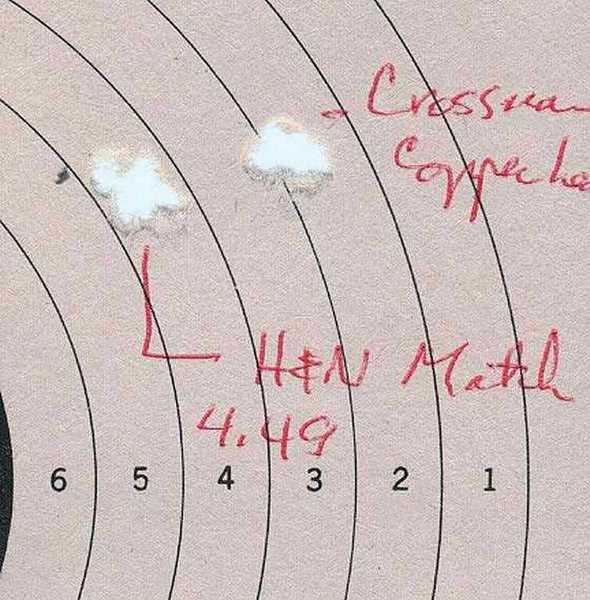 Crossma
Copperhea
H&N Match
4.49
6 5 4 3 2 1